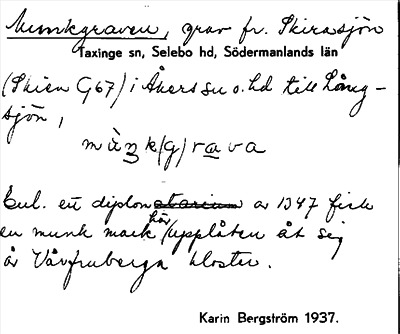 Munkgraven, grav fr. Skirasjön
Taxinge sn, Selebo hd, Södermanlands län
(Skiren G67) i Åkers sn o. hd till Lång-
sjön,
mùnk(g)rava
Enl. ett diplom a 1347 fick
en munk mark här/upplåten åt sig
av Vårfruberga kloster.
Karin Bergström 1937.